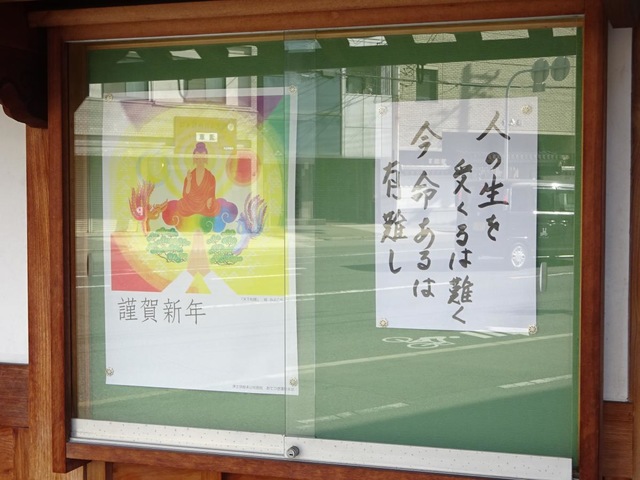 人の生を
受くるは難く
今命あるは
有難し
謹賀新年